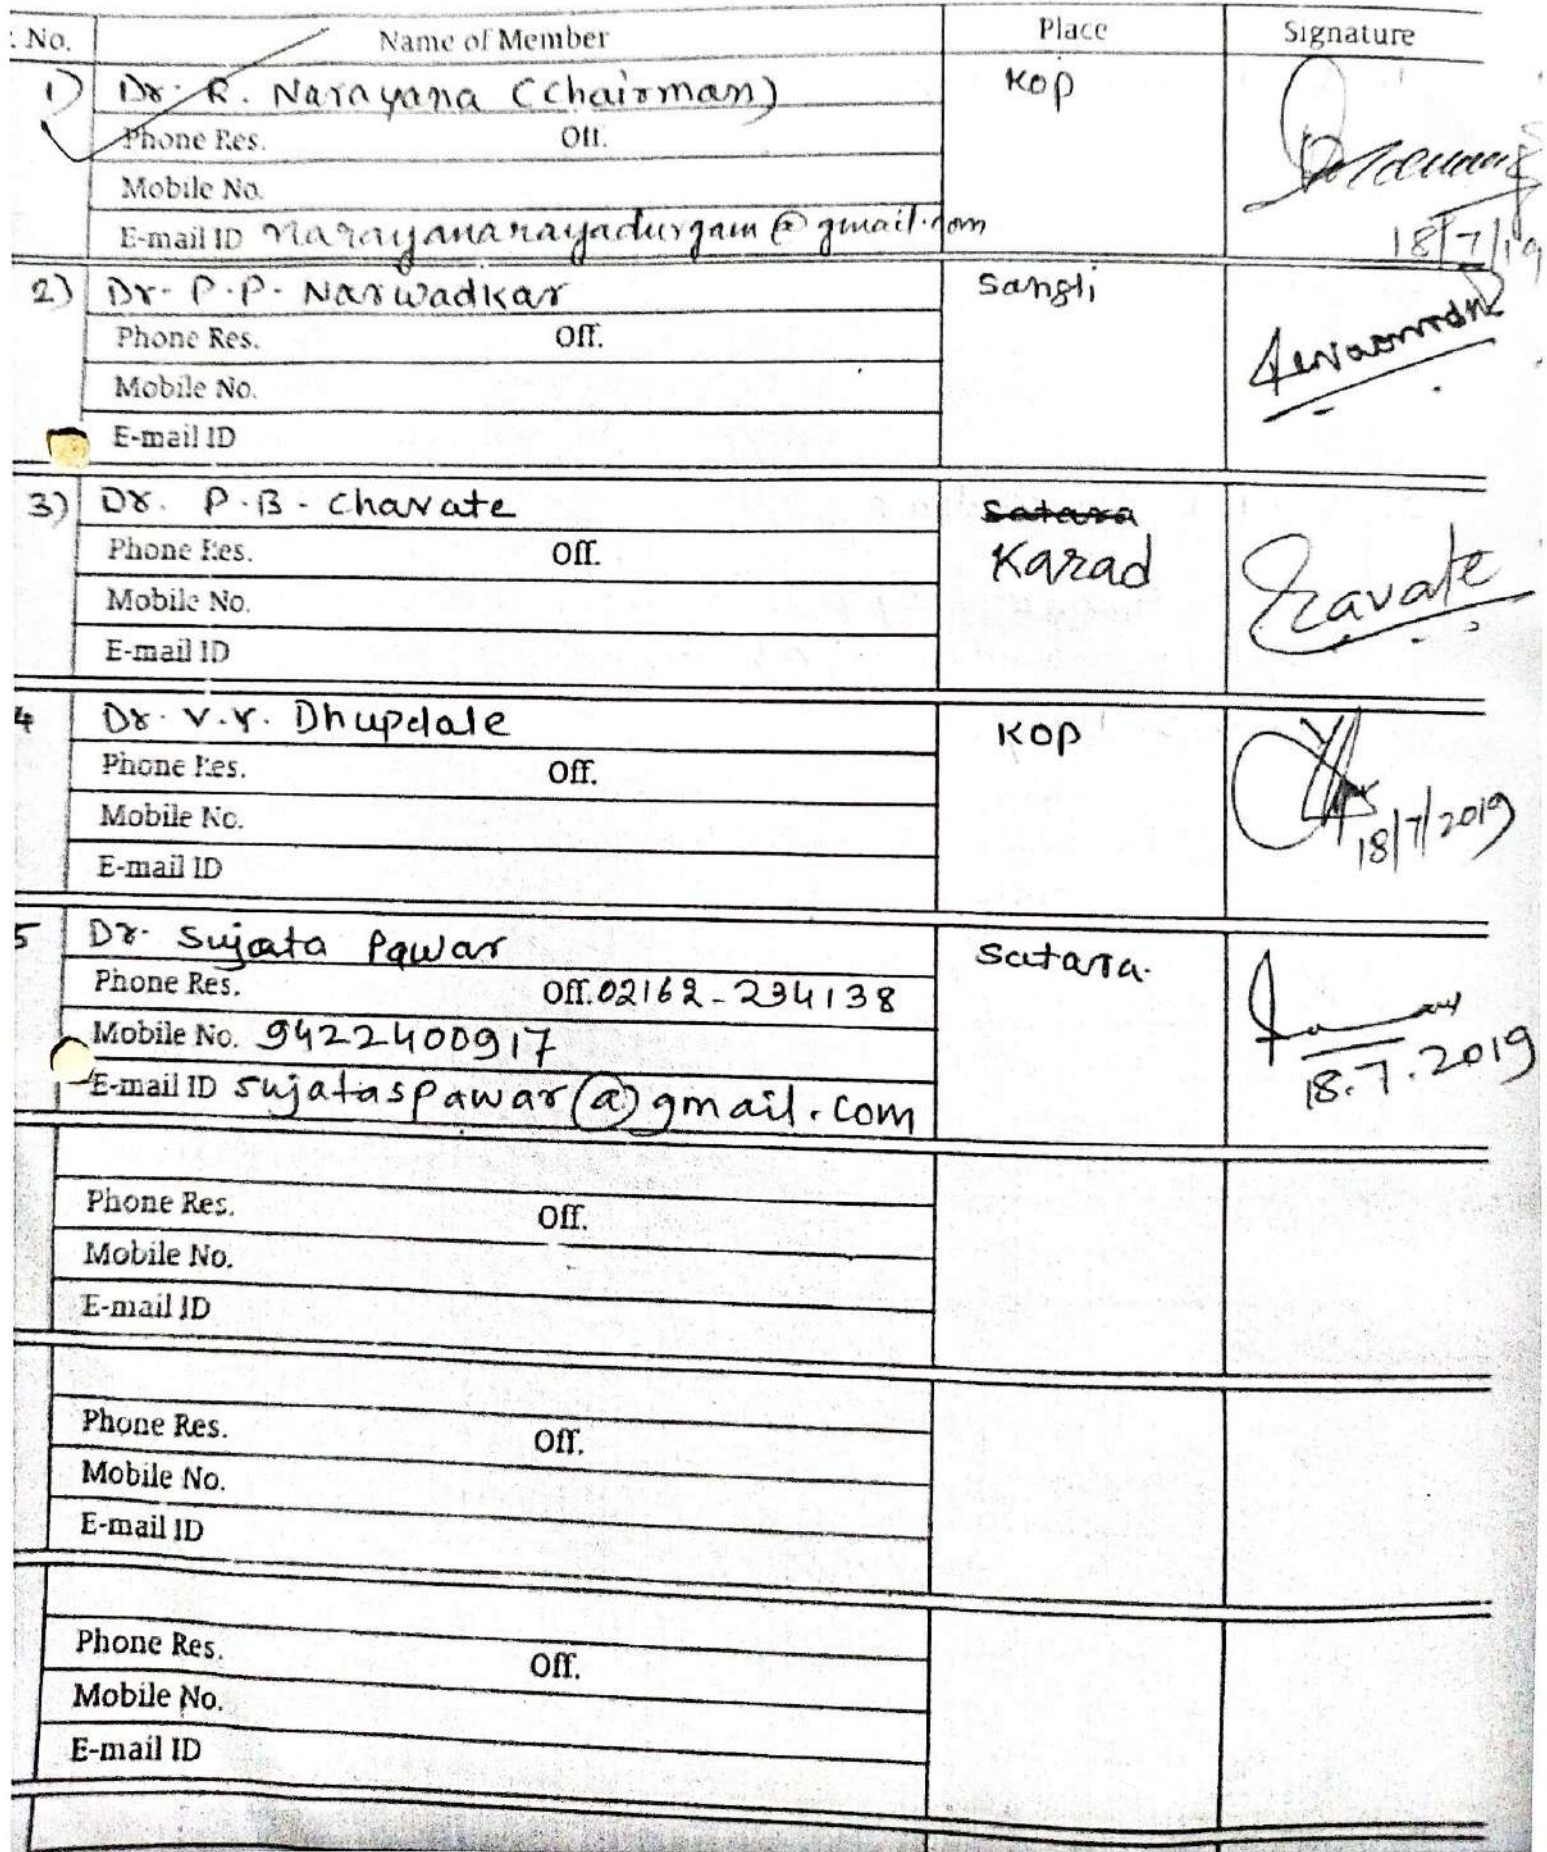 . No. Name of Member Place Signature
1) Dr. R. Narayana (Chairman) Kop
Phone Res. Off.
Mobile No.
E-mail ID narayanarayadurgam@gmail.com
18/7/19
2) Dr. P.P. Narwadkar Sangli
Phone Res. Off.
Mobile No.
E-mail ID
3) Dr. P.B. Chavate Satara
Phone Res. Off. Karad
Mobile No.
E-mail ID
4 Dr. V.Y. Dhupdale Kop
Phone Res. Off.
Mobile No. 18/7/2019
E-mail ID
5 Dr. Sujata Pawar Satara.
Phone Res. Off. 02162-234138
Mobile No. 9422400917
E-mail ID sujataspawar@gmail.com 18.7.2019
Phone Res. Off.
Mobile No.
E-mail ID
Phone Res. Off.
Mobile No.
E-mail ID
Phone Res. Off.
Mobile No.
E-mail ID